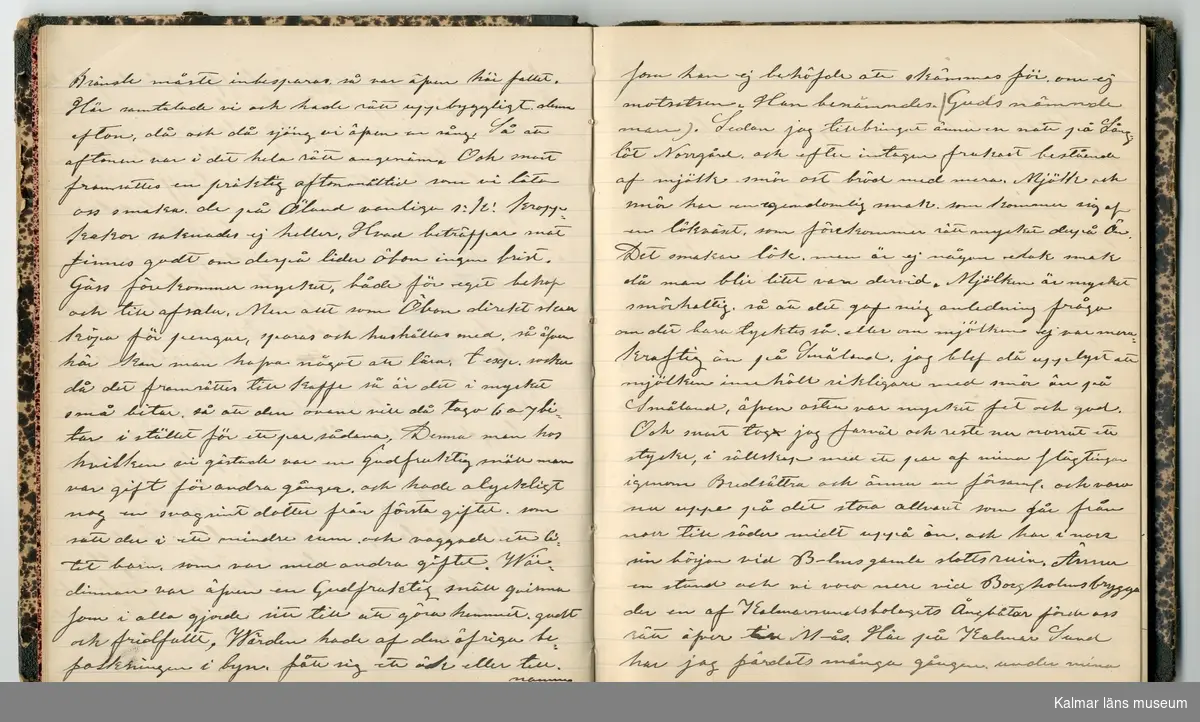 Bränsle måste inbesparas, så var äfven här fallet.
Här samtalade vi och hade rätt uppbyggligt denna
efton, då och då sjöng vi äfven en sång. Så att
aftonen var i det hela rätt angenäm. Och snart
framsattes en präktig aftonmåltid som vi läto
oss smaka. de på Öland vanliga s: k: kropp-
kakor saknades ej heller. Hvad beträffar mat
finnes godt om derpå lider Öbon ingen brist.
Gäss förekommer mycket, både för eget behof
och till afsalu. Men allt som Öbon direkt skall
köpa för pengar, sparas och hushållas med, så äfven
här kan man hafva något att lära. t. exp. socker
då det framsättes till kaffe så är det i mycket
små bitar, så att den ovane vill då taga 6 a 7 bi-
tar i stället för ett par sådana. Denna man hos
hvilken vi gästade var en Gudfruktig snäll man
var gift för andra gången, och hade olyckligt
nog en svagsint dotter från första giftet. som
satt der i ett mindre rum, och vaggade ett li-
tet barn, som var med andra giftet. Wär-
dinnan var äfven en Gudfruktig snäll qvinna
som i alla gjorde sitt till att göra hemmet, godt
och fridfullt. Wärden hade af den öfriga be-
folkningen i byn, fått sig ett ök eller till-
namn
som han ej behöfde att skämmas för, om ej
motsatsen. Han benämndes. (Guds nämnde
man). Sedan jag tillbringat ännu en natt på Lång-
löt Norrgård, och efter intagen frukost bestående
af mjölk smör ost bröd med mera. Mjölk och
smör har en egendomlig smak, som kommer sig af
en lökväxt, som förekommer rätt mycket derpå Ön.
Det smakar lök, men är ej någon elak smak
då man blir litet van dervid. Mjölken är mycket
smörhaltig, så att det gaf mig anledning fråga
om det bara tycktes så, eller om mjölken ej var mera
kraftig än på Småland, jag blef då upplyst att
mjölken innehållt rikligare med smör än på
Småland, äfven osten var mycket fet och god.
Och snart tog jag farväl och reste nu norrut ett
stycke, i sällskap med ett par af mina slägtingar
igenom Bredsättra och ännu en församl. och voro
nu uppe på det stora allvaret som går från
norr till söder midt uppå ön, och har i norr
sin början vid B-lms gamla slottsruin. Ännu
en stund och vi voro nere vid Borgholmsbrygga
der en af Kalmarsundsbolagets Ångbåtar förde oss
rätt öfver till M-ås. Här på Kalmar Sund
har jag färdats många gånger, under mina
Kalmar läns museum